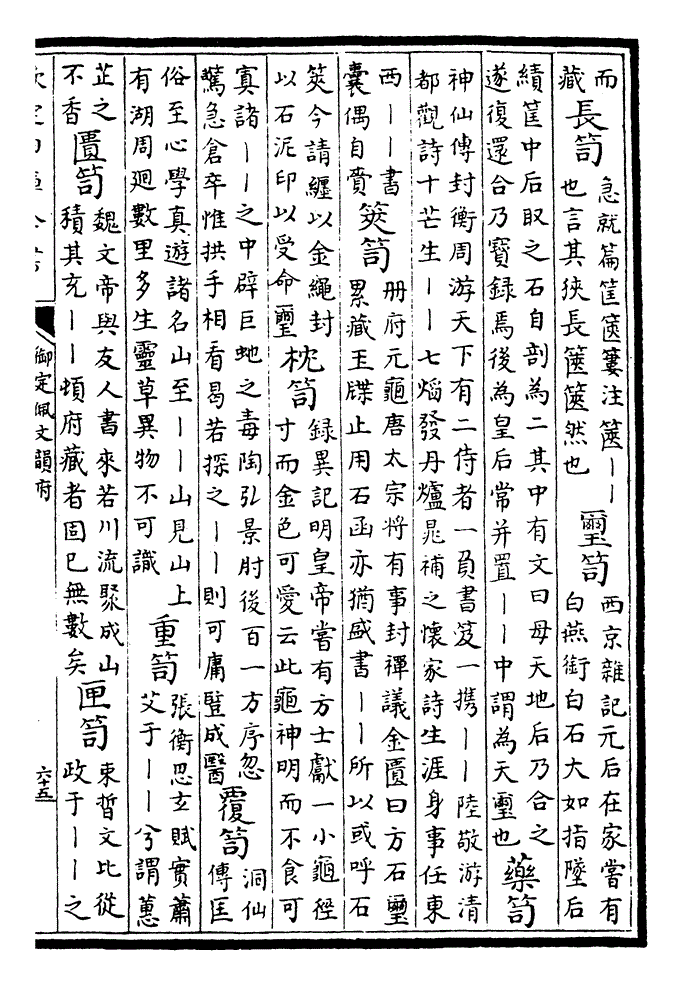 而
藏
長笥
急就篇筐篋簍注篋丨丨
也言其狹長篋篋然也
璽笥
西京雜記元后在家嘗有
白燕銜白石大如指墜后
績筐中后取之石自剖為二其中有文曰母天地后乃合之
遂復還合乃寶録焉後為皇后常并置丨丨中謂為天璽也
藥笥
神仙傳封衡周游天下有二侍者一負書笈一携丨丨陸敬游清
都觀詩十芒生丨丨七熖發丹爐晁補之懷家詩生涯身事任東
西丨丨書
囊偶自賫
筴笥
册府元龜唐太宗將有事封禪議金匱曰方石璽
累藏玉牒止用石函亦猶盛書丨丨所以或呼石
筴今請纒以金繩封
以石泥印以受命璽
枕笥
録異記明皇帝嘗有方士獻一小龜徑
寸而金色可愛云此龜神明而不食可
寘諸丨丨之中辟巨虵之毒陶弘景肘後百一方序忽
驚急倉卒惟拱手相看曷若探之丨丨則可庸豎成醫
覆笥
洞仙
傳匡
俗至心學真遊諸名山至丨丨山見山上
有湖周迴數里多生靈草異物不可識
重笥
張衡思玄賦實蕭
艾于丨丨兮謂蕙
芷之
不香
匱笥
魏文帝與友人書來若川流聚成山
積其充丨丨頓府藏者固已無數矣
匣笥
束晳文比從
政于丨丨之
欽定四庫全書
御定佩文韻府
六十五